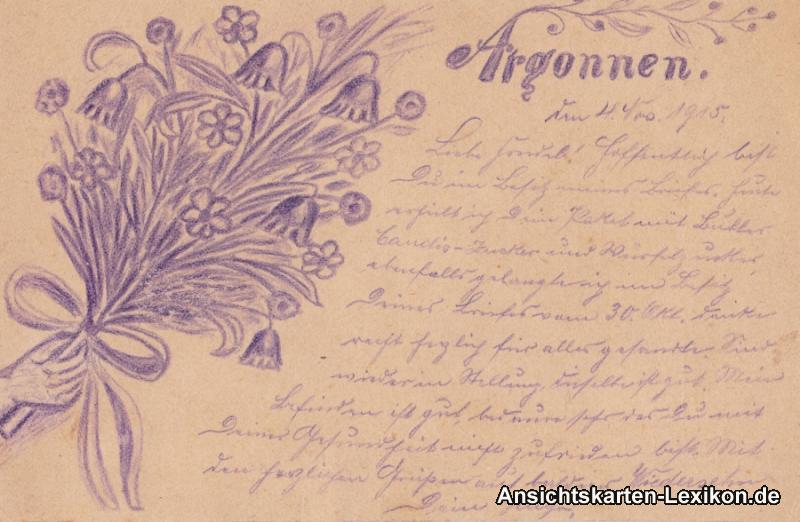 Argonnen.
den 4. Nov. 1915.
Liebe! Hoffentlich bist
Du im Besitz meines Briefes. Heute
erhielt ich Dein Paket mit Butter
Candis-Zucker und Würfelzucker,
ebenfalls gelangte ich im Besitz
Deines Briefes vom 30. Okt. Danke
recht herzlich für alles gesandte. Sind
wieder in Stellung, dieselbe ist gut. Mein
Befinden ist gut, bedaure sehr das Du mit
Deiner Gesundheit nicht zufrieden bist. Mit
den herzlichen Grüßen auf baldiges Wiedersehn
Dein
Ansichtskarten-Lexikon.de